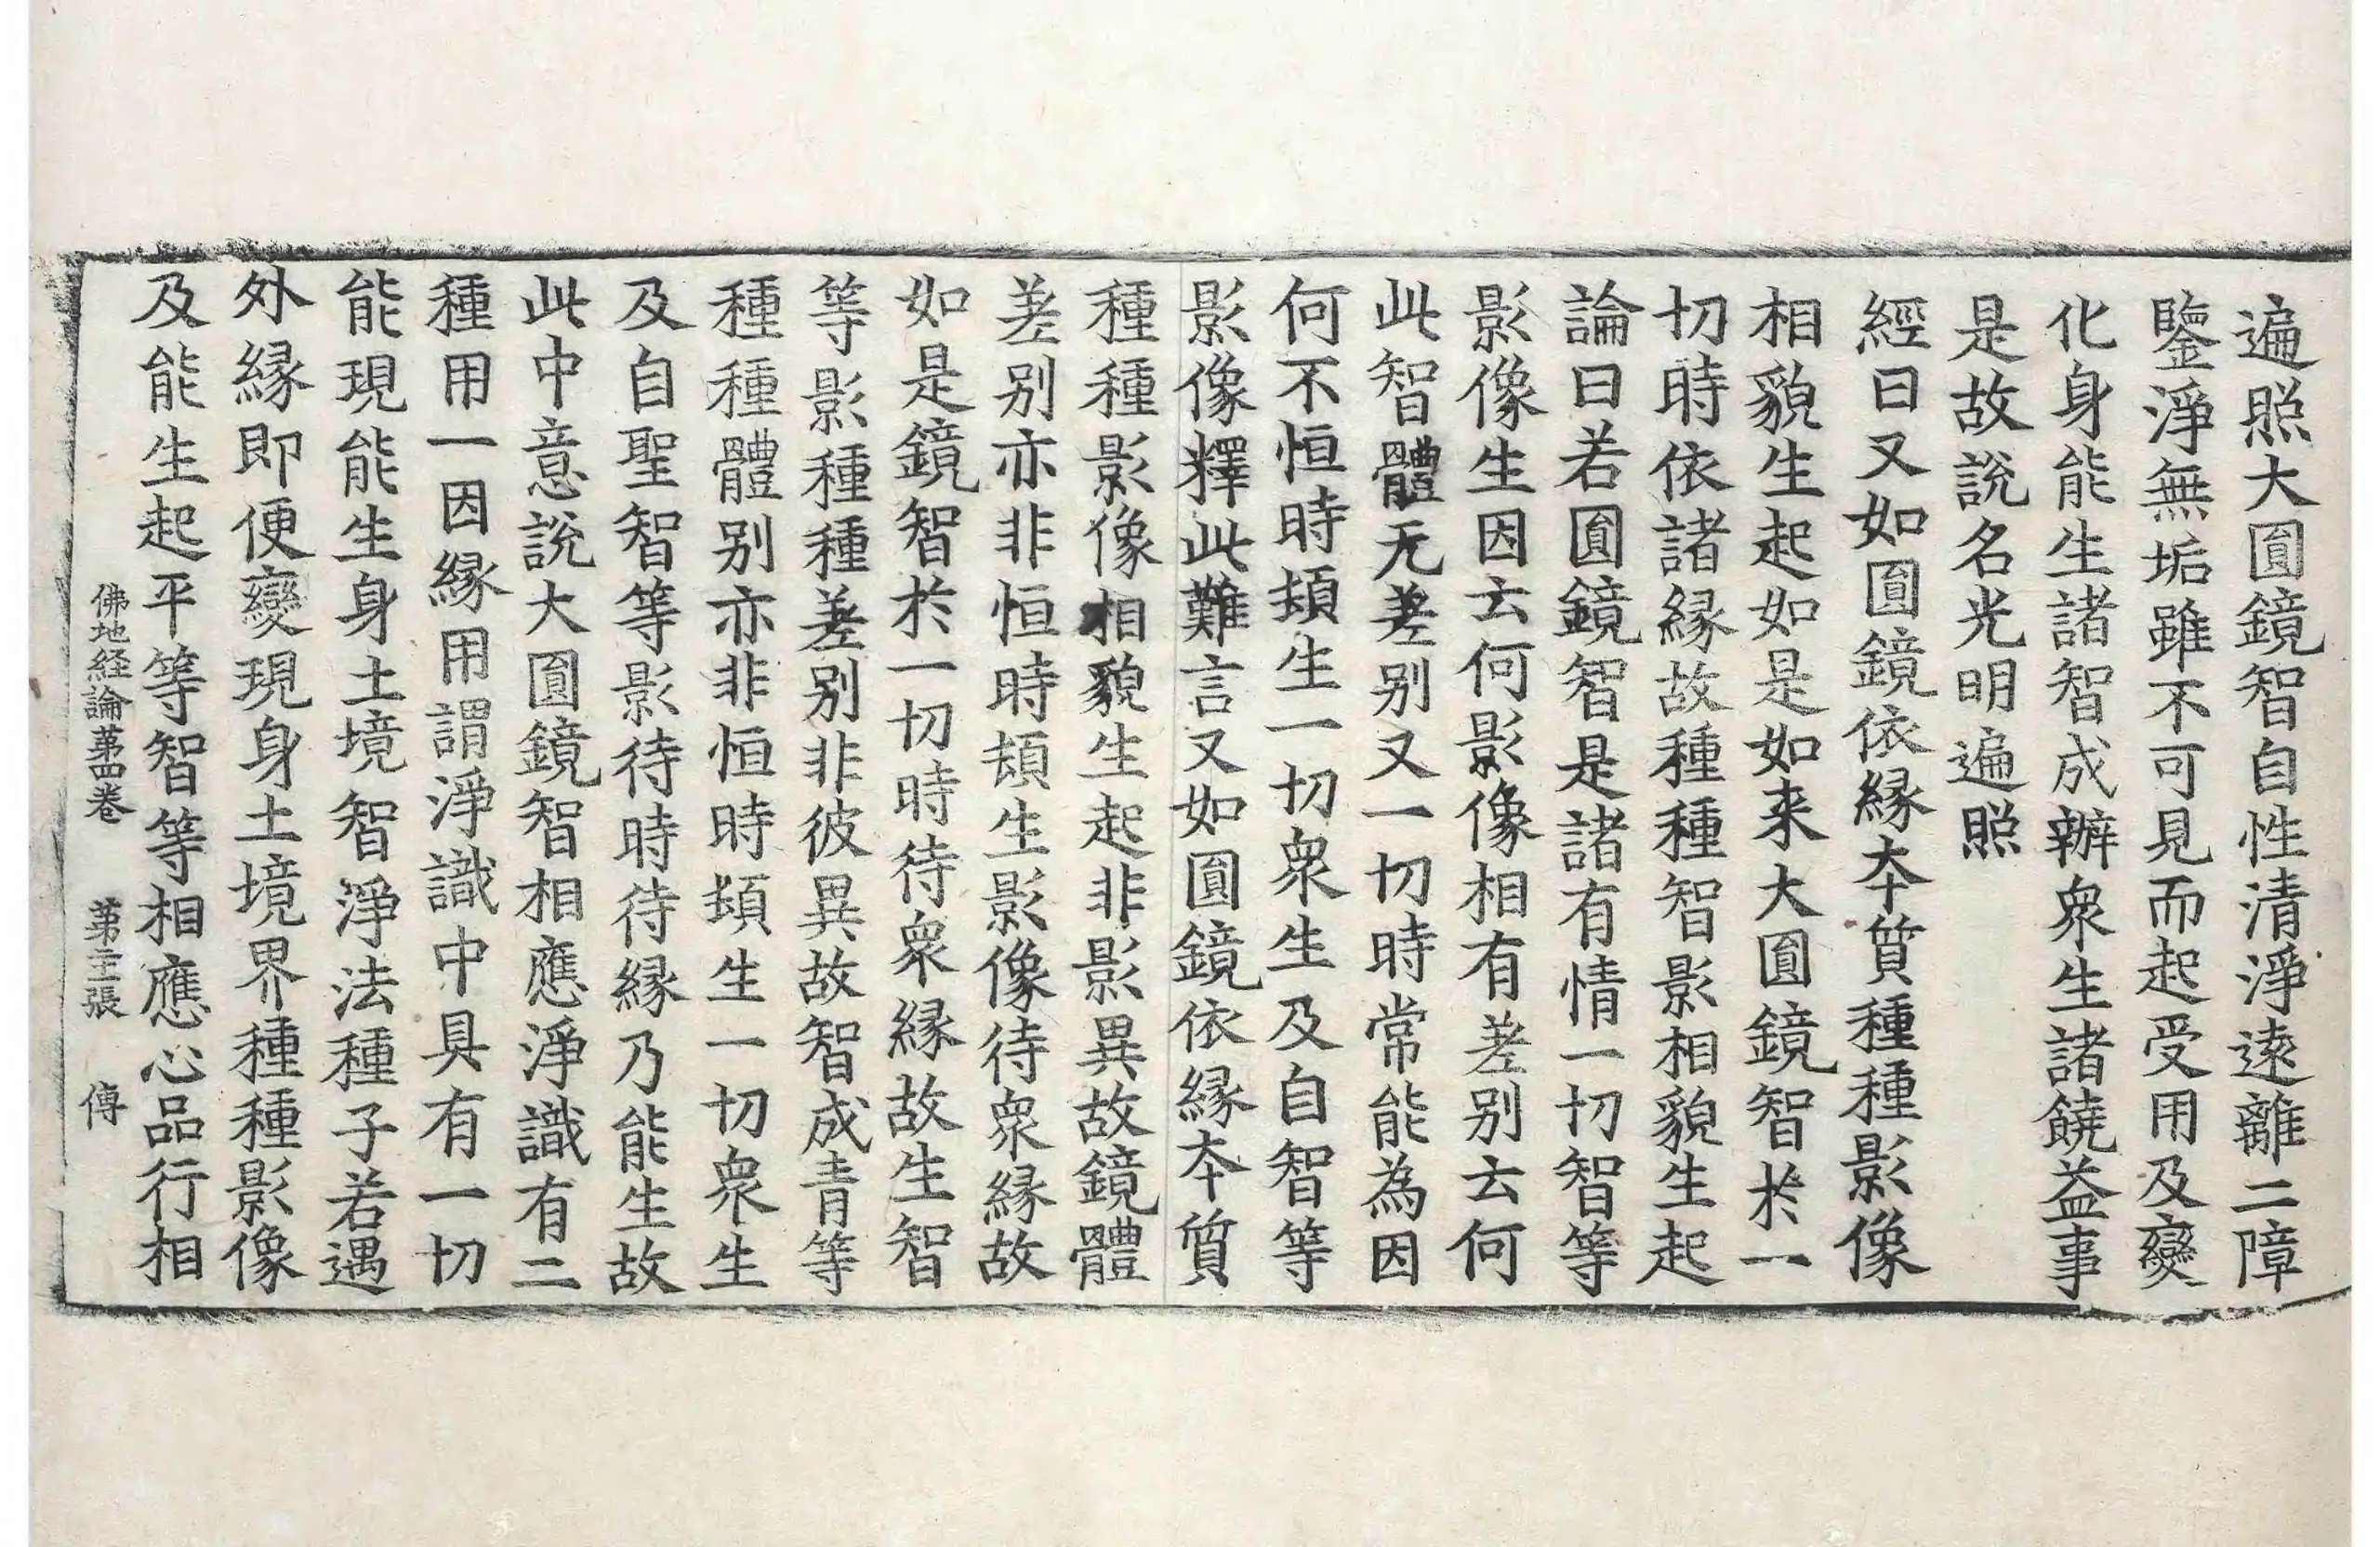 遍照大圎鏡智自性清淨遠離二障
鑒淨無垢雖不可見而起受用及變
化身能生諸智成辦衆生諸饒益事
是故說名光明遍照
經曰又如圎鏡依縁夲質種種影像
相貌生起如是如来大圎鏡智於一
切時依諸縁故種種智影相貌生起
論曰若圎鏡智是諸有情一切智等
影像生因去何影像相有差別去何
此智體无差別又一切時常能為因
何不恒時頓生一切衆生及自智等
影像釋此難言又如圎鏡依縁夲質
種種影像相貌生起非影異故鏡體
差別亦非恒時頓生影像待衆縁故
如是鏡智於一切時待衆縁故生智
等影種種差別非彼異故智成青等
種種體別亦非恒時頓生一切衆生
及自聖智等影待時待縁乃能生故
此中意說大圎鏡智相應淨識有二
種用一因縁用謂淨識中具有一切
能現能生身土境智淨法種子若遇
外縁即便變現身土境界種種影像
及能生起平等智等相應心品行相
佛地経論苐四卷 苐三張 傳